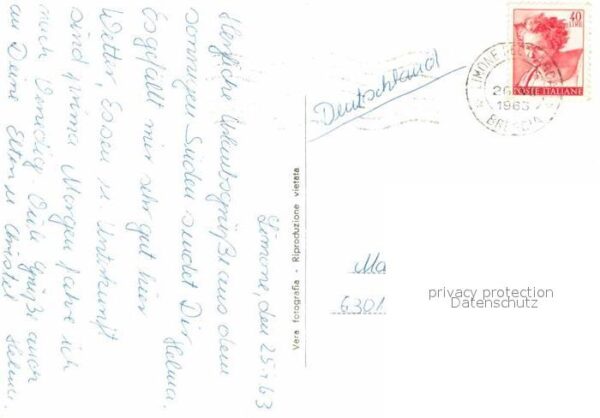 Limone, den 25. 63
Herzliche Urlaubsgrüße aus dem
sonnigen Süden sendet Dir
Helma.
Es gefällt mir sehr gut hier
Wetter, Essen u. Unterkunft
sind prima Morgen fahre ich
nach Venedig. Viele Grüße auch
an Deine Eltern u. Christel
Helma.
Vera fotografia - Riproduzione vietata
Deutschland
40
LIRE
POSTE ITALIANE
LIMONE
26
1963
BRESCIA
Ma
6301
privacy protection
Datenschutz